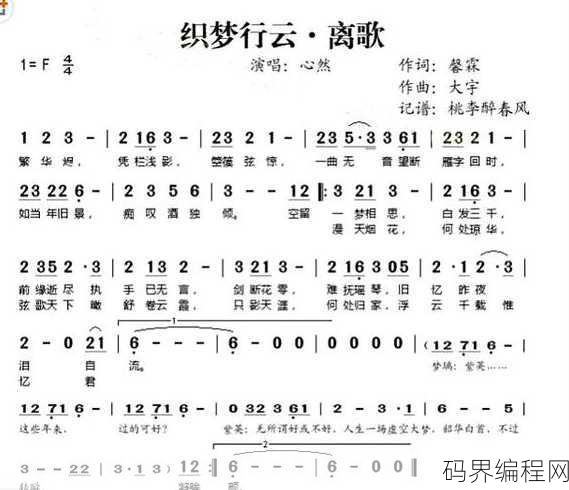 织梦行云·离歌
1=F 4/4 演唱：心然 作词：馨霖
作曲：大宇
记谱：桃李醉春风
1 2 3 - | 2 163 - | 23 2 1 - | 23 5·3 3 61 | 23 2 1 - |
繁华烬， 凭栏浅影， 箜篌弦惊， 一曲无音望断 雁字回时，
23 22 6 - | 2 3 5 2 | 3 - - 12 ‖: 3 216 - | 2 163 - |
如当年旧景， 痴叹酒独倾。 空留 一梦相思， 白发三千，
漫天烟花， 何处琼华，
2 35 2 · 3 | 2 163 - | 3 213 - | 2 163 05 | 2 · 1 2 · 3 |
前缘逝尽执手已无言， 剑断花零， 难抚瑶琴，旧忆昨夜
弦歌天下瞰舒卷云霞， 只影天涯， 何处归家，浮云千载惟
1
2 - 0 21 | 6 - - - | 6 - 0 0 | 0 0 0 0 | (12 71 6 - |
泪 自流。 梦璃：紫英……
忆 君
12 71 6 - | 12 71 6 - | 0 32 35 61 | 12 71 6 - | 12 71 6 - |
这些年来， 过的可好？ 紫英：无所谓好或不好，人生一场虚空大梦，韶华白首，不过
2
3 - - 22 | 3 - - 12) :‖ 6 - - - | 6 - 0 0 ‖
码界编程网